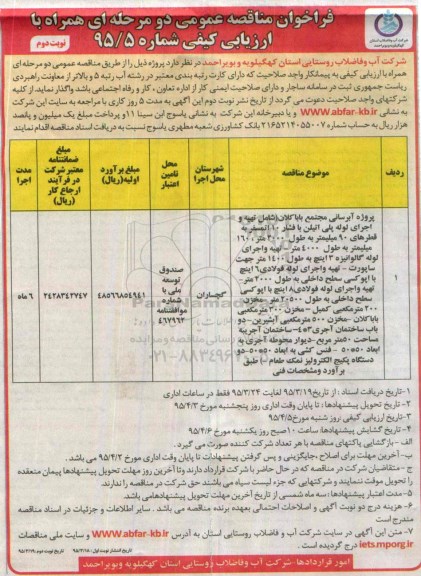 فراخوان مناقصه عمومی دو مرحله ای همراه با
ارزیابی کیفی شماره ۹۵/۵
نوبت دوم
شرکت آب وفاضلاب روستایی استان کهگیلویه و بویراحمد در نظر دارد پروژه ذیل را از طریق مناقصه عمومی دو مرحله ای
همراه با ارزیابی کیفی به پیمانکار واجد صلاحیت که دارای کارت رتبه بندی معتبر در رشته آب رتبه ۵ و بالاتر از معاونت راهبردی
ریاست جمهوری ثبت در سامانه ساجار و دارای صلاحیت ایمنی کار از اداره تعاون ، کار و رفاه اجتماعی باشد واگذار نماید. از کلیه
شرکتهای واجد صلاحیت دعوت می گردد از تاریخ نشر نوبت دوم این آگهی به مدت ۵ روز کاری با مراجعه به سایت این شرکت
به نشانی www.abfar-kb.ir و یا دبیرخانه این شرکت. به نشانی یاسوج ابن سینا ۱۱ و پرداخت مبلغ یک میلیون و پانصد
هزار ریال به حساب شماره ۲۱۶۵۲۱۴۰۵۵۰۰۷ بانک کشاورزی شعبه مطهری یاسوج نسبت به دریافت اسناد مناقصه اقدام نمایند
ردیف
موضوع مناقصه
شهرستان محل اجرا
محل تامین اعتبار
مبلغ برآورد اولیه(ریال)
مبلغ ضمانتنامه معتبر شرکت در فرآیند ارجاع کار (ریال)
مدت اجرا
۱
پروژه آبرسانی مجتمع باباکلان(شامل تهیه و
اجرای لوله پلی اتیلن با فشار ۱۰اتمسفر به
قطرهای ۹۰ میلیمتر به طول ۳۰۰۰ متر،۱۶۰
میلیمتر به طول ۴۰۰۰ متر- تهیه واجرای
لوله گالوانیزه ۳ اینچ به طول ۱۴۰۰ متر جهت
ساپورت - تهیه واجرای لوله فولادی۶ اینچ
با اپوکسی سطح داخلی به طول ۲۰۰۰ متر-
تهیه واجرای لوله فولادی۸ اینچ با اپوکسی
سطح داخلی به طول ۲۰۵۰۰ متر-مخزن
۲۰۰ مترمکعبی کعبل - مخزن ۳۰۰ مترمکعبی
باباکلان -مخزن ۵۰۰ مترمکعبی آبشیرین-دو
باب ساختمان آجری۳*۴-ساختمان آجربه
مساحت ۵۰متر مربع-دیوار محوطه آجری به
ابعاد ۵۰*۵۰ - فنس کشی به ابعاد ۵۰*۵۰-دو
دستگاه پکیج الکترولیز نمک طعام -) طبق
برآورد ومشخصات فنی
گچساران
صندوق توسعه ملی با شماره موافقتنامه ۴۶۷۹۶۲
۴۸۵۶۶۸۵۴۹۴۱
۲۴۲۸۳۴۲۷۴۷
۶ ماه
۱-تاریخ دریافت اسناد : از تاریخ۹۵/۳/۱۹ لغایت ۹۵/۳/۲۴ فقط در ساعات اداری
۲- تاریخ تحویل پیشنهادها: تا پایان وقت اداری روز پنجشنبه مورخ ۹۵/۴/۳
۳-تاریخ ارزیابی کیفی :روز شنبه مورخ ۹۵/۴/۵
۴-تاریخ گشایش پیشنهادها: ساعت ۱۰صبح روز یکشنبه مورخ ۹۵/۴/۶
الف -بازگشایی پاکتهای مناقصه با هر تعداد شرکت کننده صورت می گیرد.
ب- آخرین مهلت برای اصلاح ،جایگزینی و پس گرفتن پیشنهادات تا پایان وقت اداری مورخ ۹۵/۴/۲ می باشد.
ج- متقاضیان شرکت در مناقصه که در حال حاضر با شرکت قرارداد دارند وتا آخرین روز مهلت تحویل پیشنهادها پیمان منعقده
را تحویل موقت ننمایند و شرکتهایی که جزء لیست سیاه می باشند حق شرکت در مناقصه را ندارند.
۵- مدت اعتبار پیشنهادها : سه ماه شمسی از تاریخ آخرین مهلت تحویل پیشنهادهامی باشد.
۶- هزینه درج دو نوبت آگهی و اصلاحات احتمالی بعهده برنده مناقصه می باشد . سایر اطلاعات و جزئیات در اسناد مناقصه
مندرج است
۷- متن این آگهی در سایت شرکت آب و فاضلاب روستایی استان به آدرس www.abfar-kb.ir و سایت ملی مناقصات
iets.mporg.ir درج گردیده است .
امور قراردادها-شرکت آب و فاضلاب روستایی استان کهگیلویه وبویراحمد